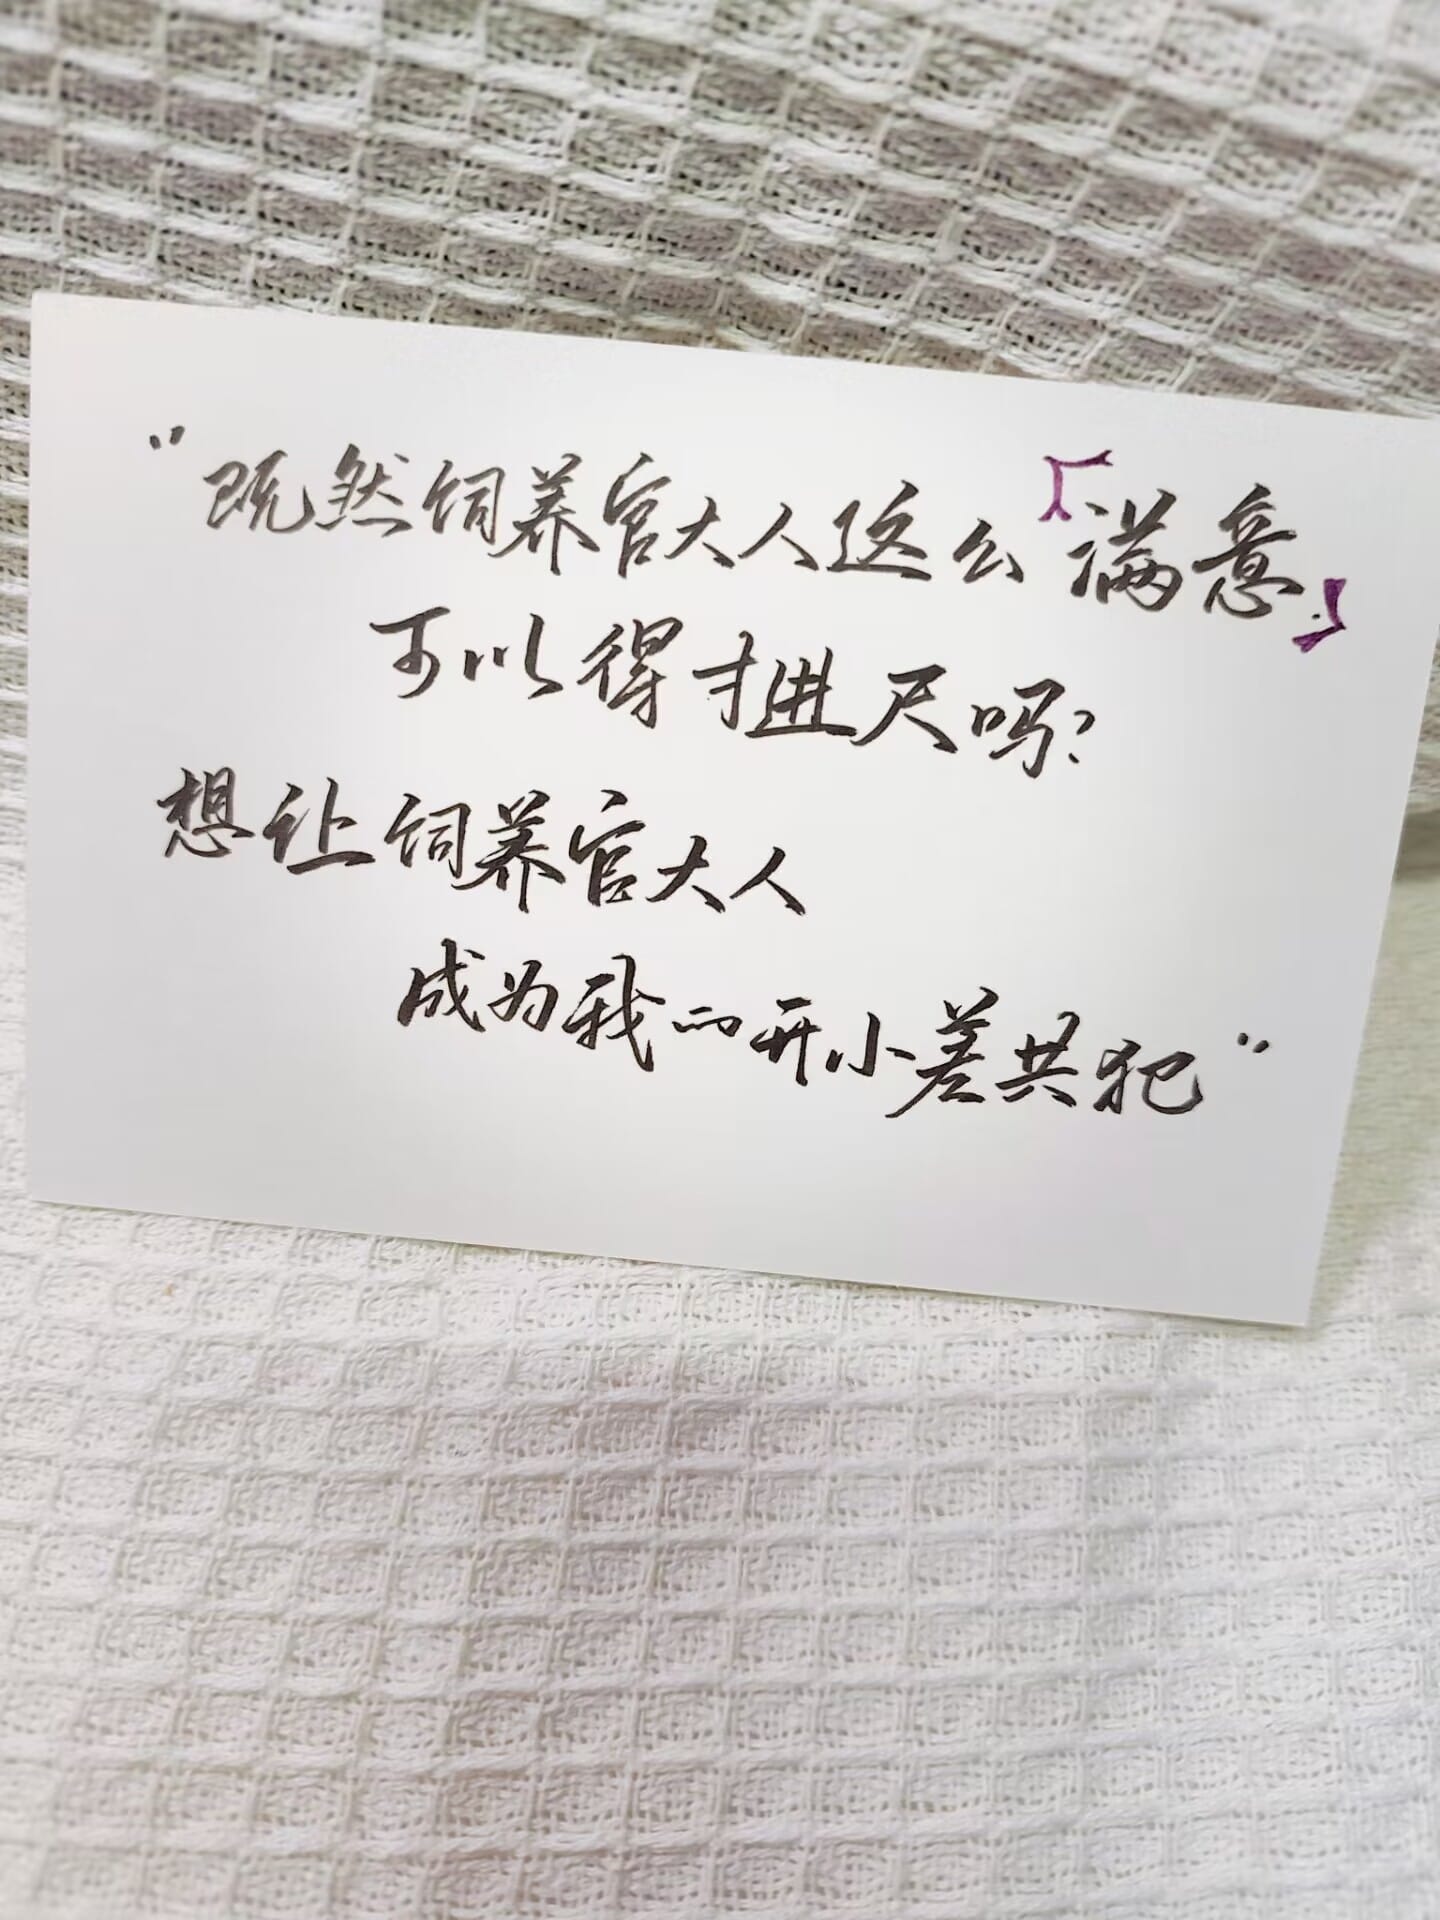 “既然饲养官大人这么「满意」
可以得寸进尺吗?
想让饲养官大人
成为我的开小差共犯”